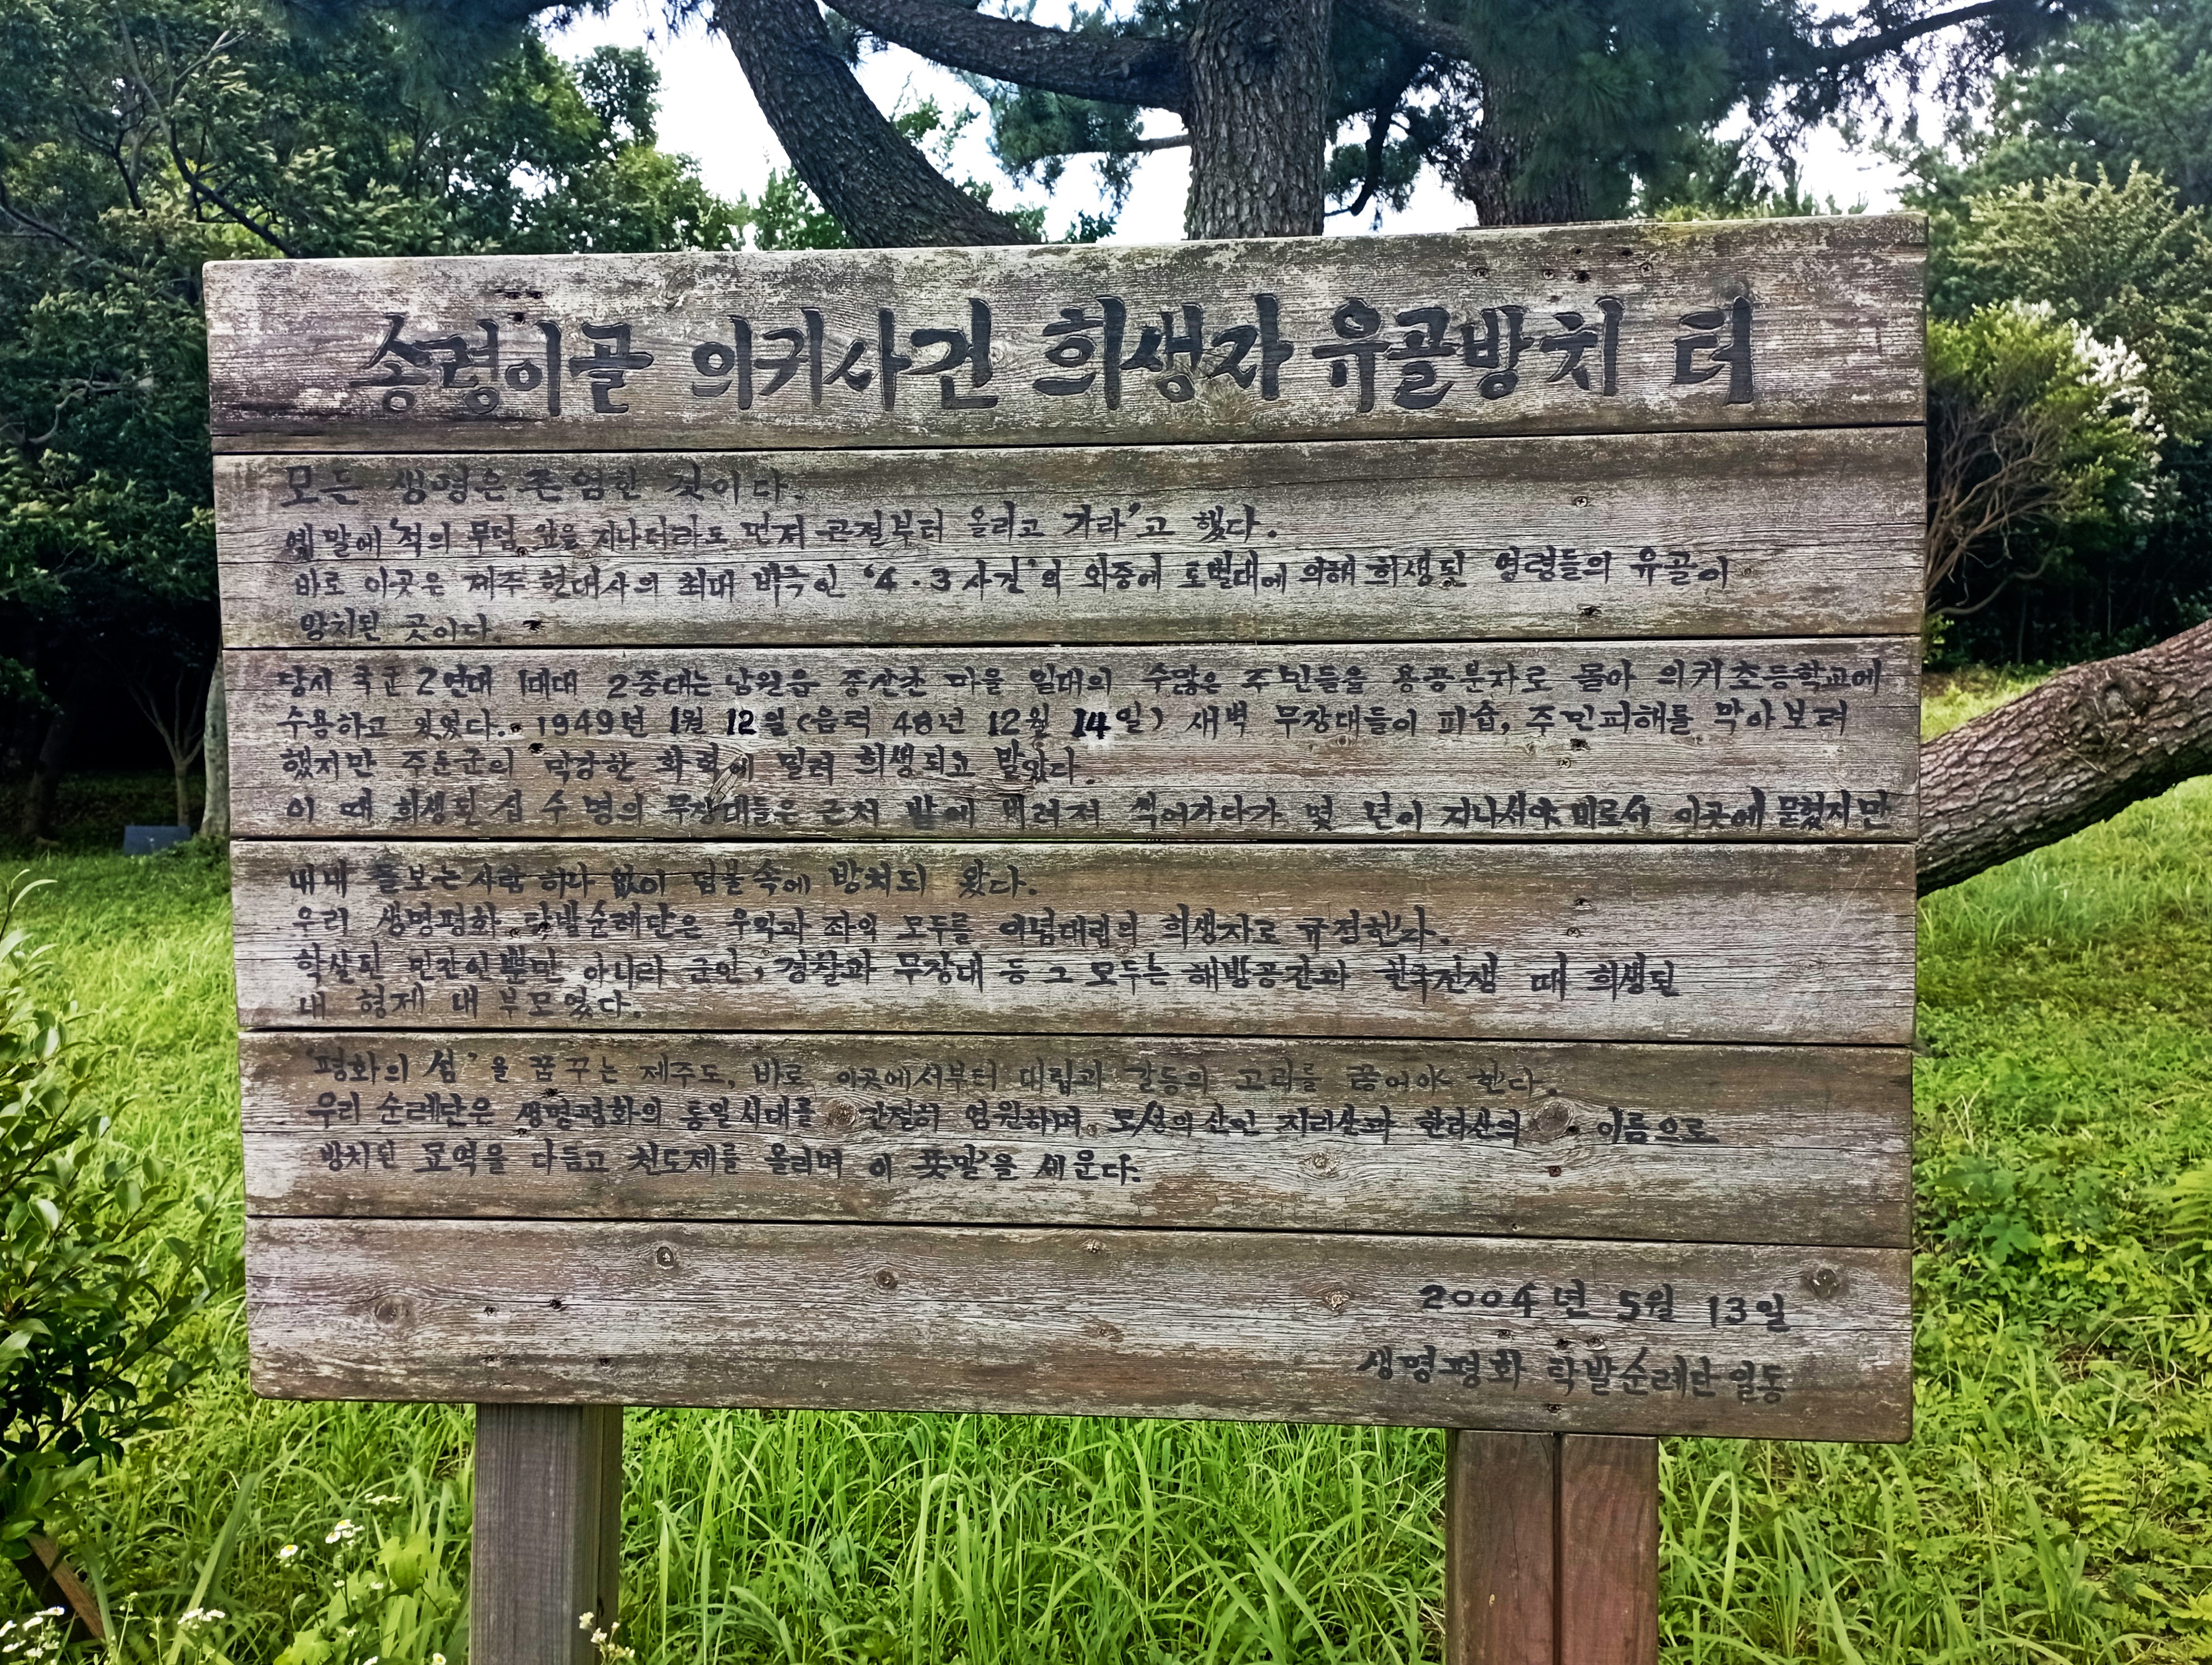 송령이골 의귀사건 희생자 유골방치 터
모든 생명은 존엄한 것이다.
옛말에 '적의 무덤 앞을 지나더라도 먼저 큰절부터 올리고 가라'고 했다.
바로 이곳은 제주 현대사의 최대 비극인 '4·3사건'의 와중에 토벌대에 의해 희생된 영령들의 유골이
방치된 곳이다.
당시 국군 2연대 1대대 2중대는 남원읍 중산간 마을 일대의 수많은 주민들을 용공분자로 몰아 의귀초등학교에
수용하고 있었다. 1949년 1월 12일(음력 48년 12월 14일) 새벽 무장대들이 피습, 주민피해를 막아보려
했지만 주둔군의 막강한 화력에 밀려 희생되고 말았다.
이 때 희생된 십 수 명의 무장대들은 근처 밭에 버려져 썩어가다가 몇 년이 지나서야 비로서 이곳에 묻혔지만
내내 돌보는 사람 하나 없이 덤불 속에 방치되 왔다.
우리 생명평화 탁발순례단은 우익과 좌익 모두를 이념대립의 희생자로 규정한다.
학살된 민간인뿐만 아니라 군인, 경찰과 무장대 등 그 모두는 해방공간과 한국전쟁 때 희생된
내 형제 내 부모였다.
'평화의 섬'을 꿈꾸는 제주도, 바로 이곳에서부터 대립과 갈등의 고리를 끊어야 한다.
우리 순례단은 생명평화의 통일시대를 간절히 염원하며 모성의 산인 지리산과 한라산의 이름으로
방치된 묘역을 다듬고 천도제를 올리며 이 푯말을 세운다.
2004년 5월 13일
생명평화 탁발순례단 일동